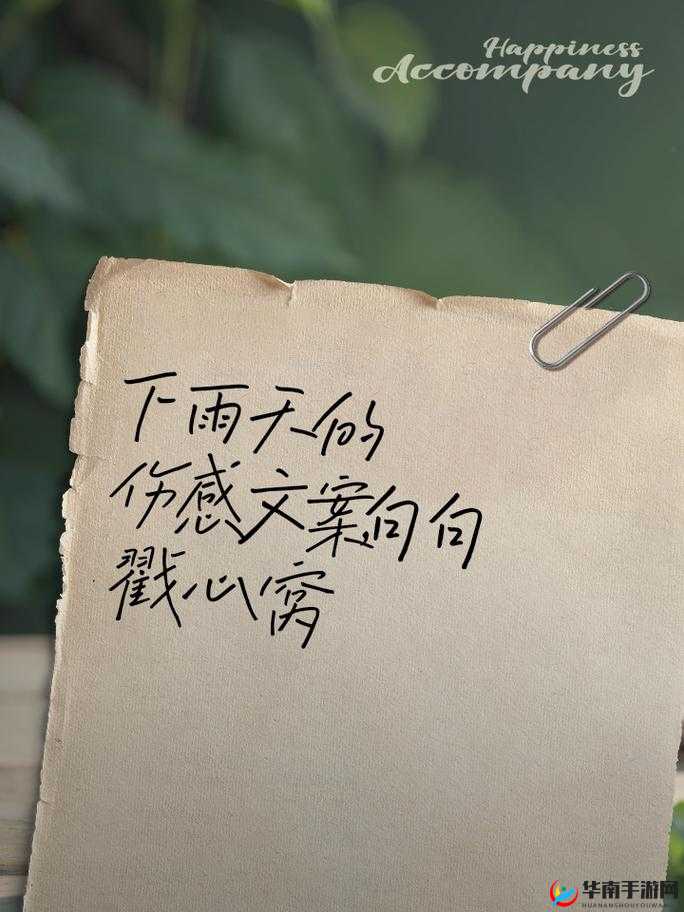 Happiness
Accompany
下雨天的
伤感文案句句
戳心窝
华南手游网
HUANANSHOUYOUWANG